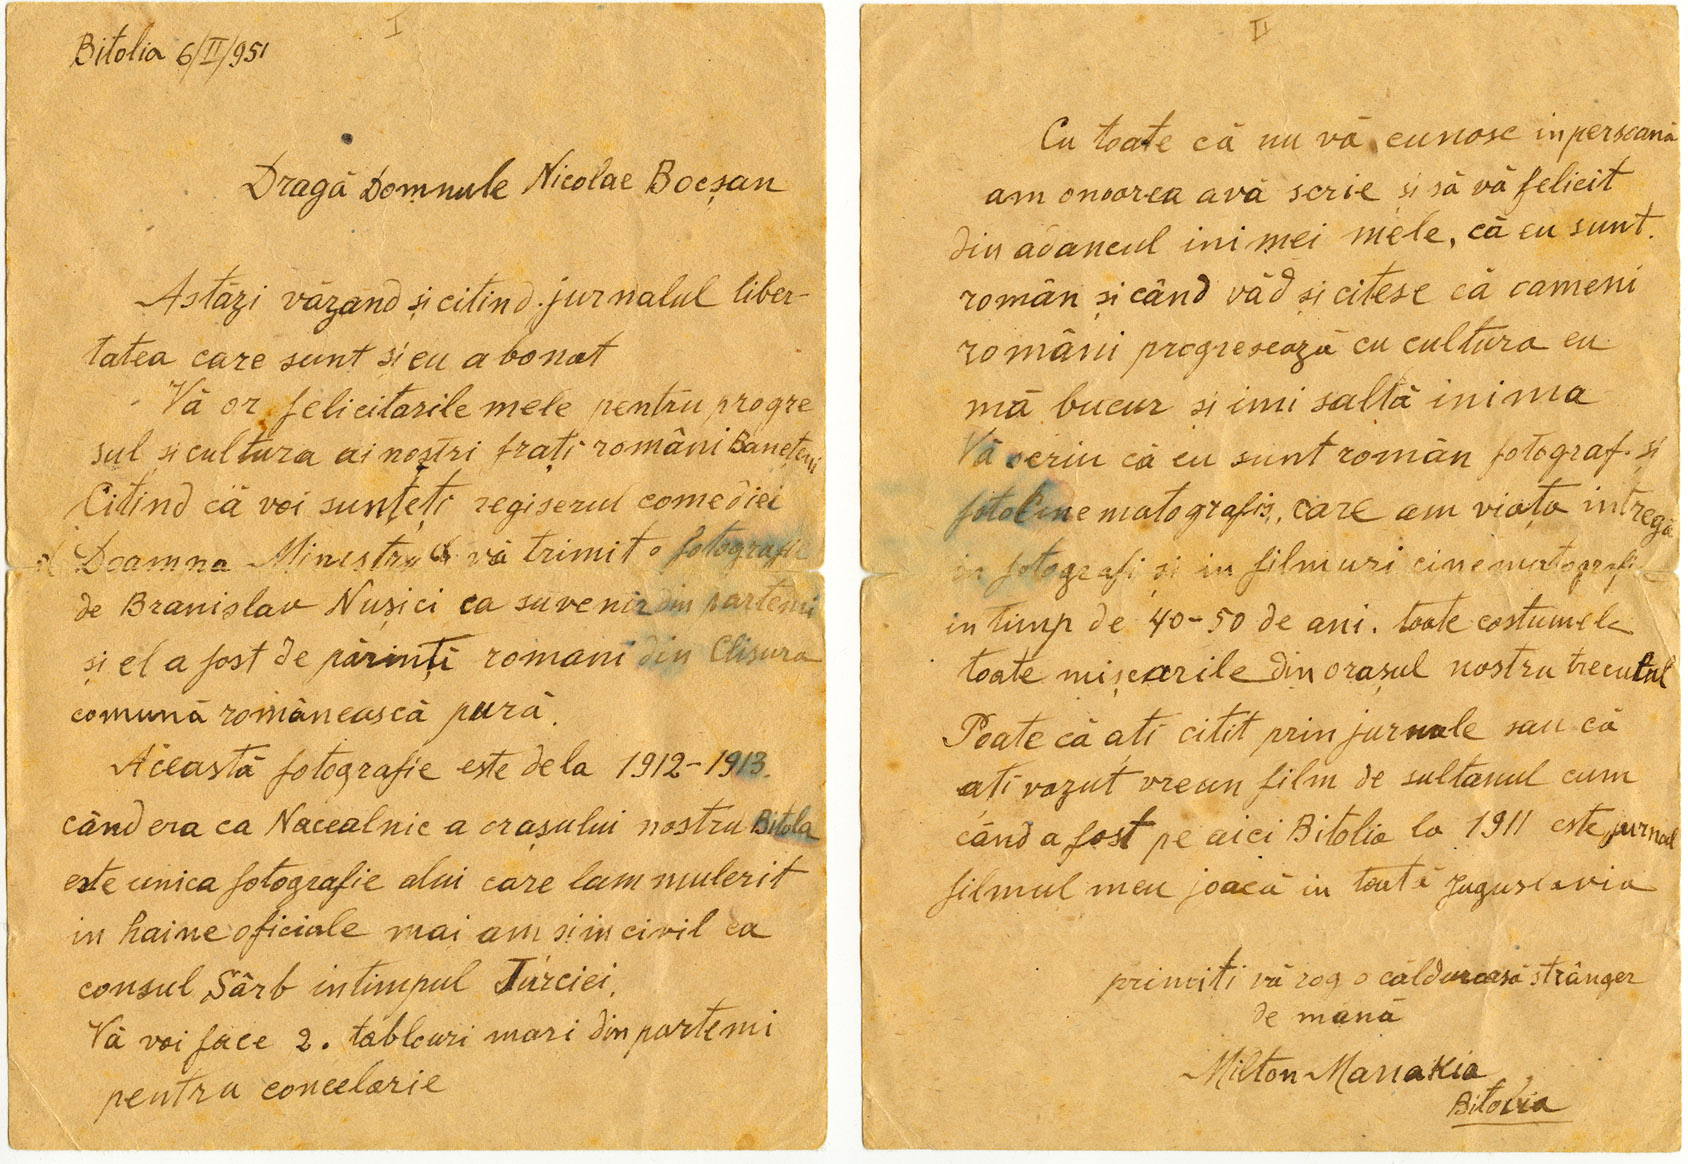 I
Bitolia 6/II/951
Dragă Domnule Nicolae Bocșan
Astăzi văzand și citind jurnalul liber-
tatea care sunt si eu abonat
Vă or felicitarile mele pentru progre
sul si cultura ai noștri frați români Banețeni
Citind că voi sunțeți regiserul comediei
Doamna Ministru vă trimit o fotografie
de Branislav Nușici ca suvenir din partemi
și el a fost de părinți romani din Clisura
comună românească pură.
Această fotografie este dela 1912-1913.
când era ca Nacealnic a orașului nostru Bitola
este unica fotografie alui care lam mulerit
in haine oficiale mai am si in civil ca
consul Sârb intimpul Turciei.
Vă voi face 2. tablouri mari din partemi
pentru concelarie
II
Cu toate că nu vă cunosc in persoană
am onoarea avă scrie și să vă felicit
din adancul inimei mele, că eu sunt.
român și când văd și citesc că oameni
români progresează cu cultura eu
mă bucur si imi saltă inima
Vă scriu că eu sunt român fotograf. si
fotocinematografis, care am viața intregă
in fotografi și in filmuri cinematografi
in timp de 40-50 de ani. toate costumele
toate mișcarile din orașul nostru trecutul
Poate că ati citit prin jurnale sau că
ati vazut vreun film de sultanul cum
când a fost pe aici Bitolia la 1911 este jurnal
filmul meu joacă in toată Juguslavia
primiti vă rog o călduroasă strânger
de mană
Milton Manakia
Bitolia